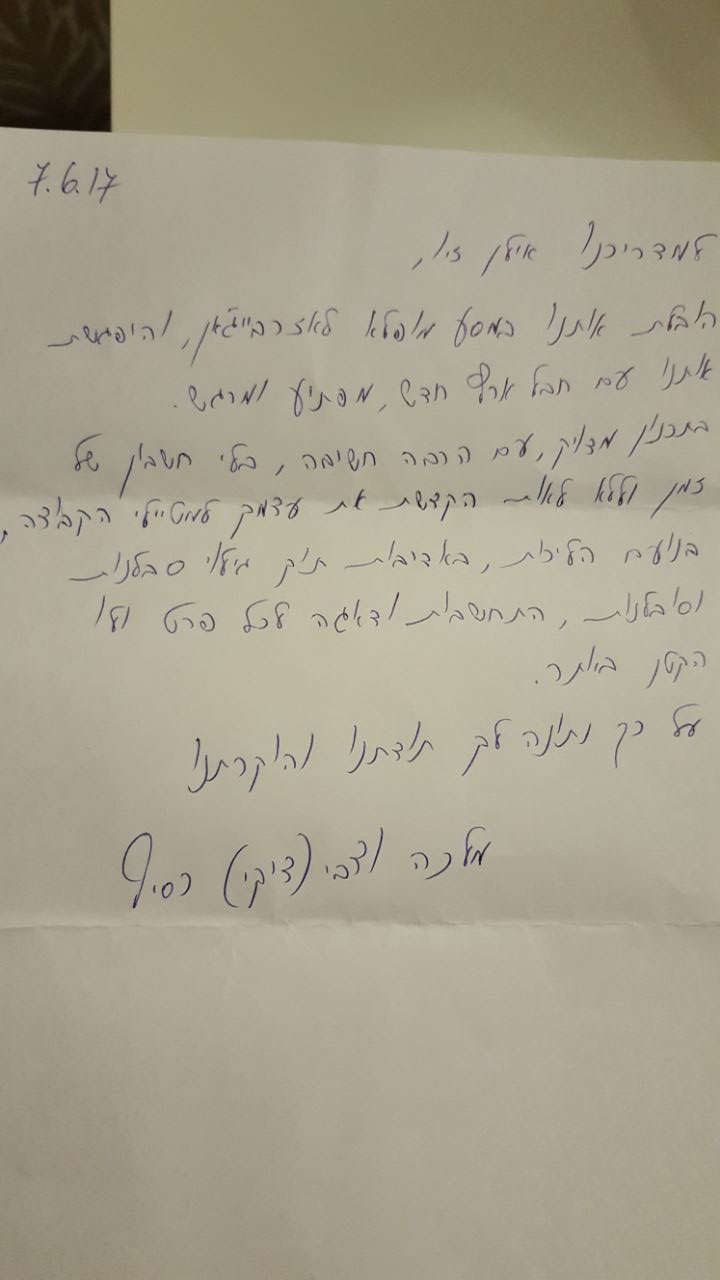 7.6.17
למדריכנו אילן זיו,
הובלת אותנו במסע מופלא לאזרבייג'אן, והיפגשת
אותנו עם חבל ארץ חדש, מפתיע ומרגש.
בתכנון מדויק, עם הרבה חשיבה, בלי חשבון של
זמן וללא לאות הקדשת את עצמך למטיילי הקבוצה,
בנועם הליכות, באדיבות תוך גילוי סבלנות
וסובלנות, התחשבות ודאגה לכל פרט ולו
הקטן ביותר.
על כך נתונה לך תודתנו והוקרתנו
מלכה וצבי (ציקי) רסיף